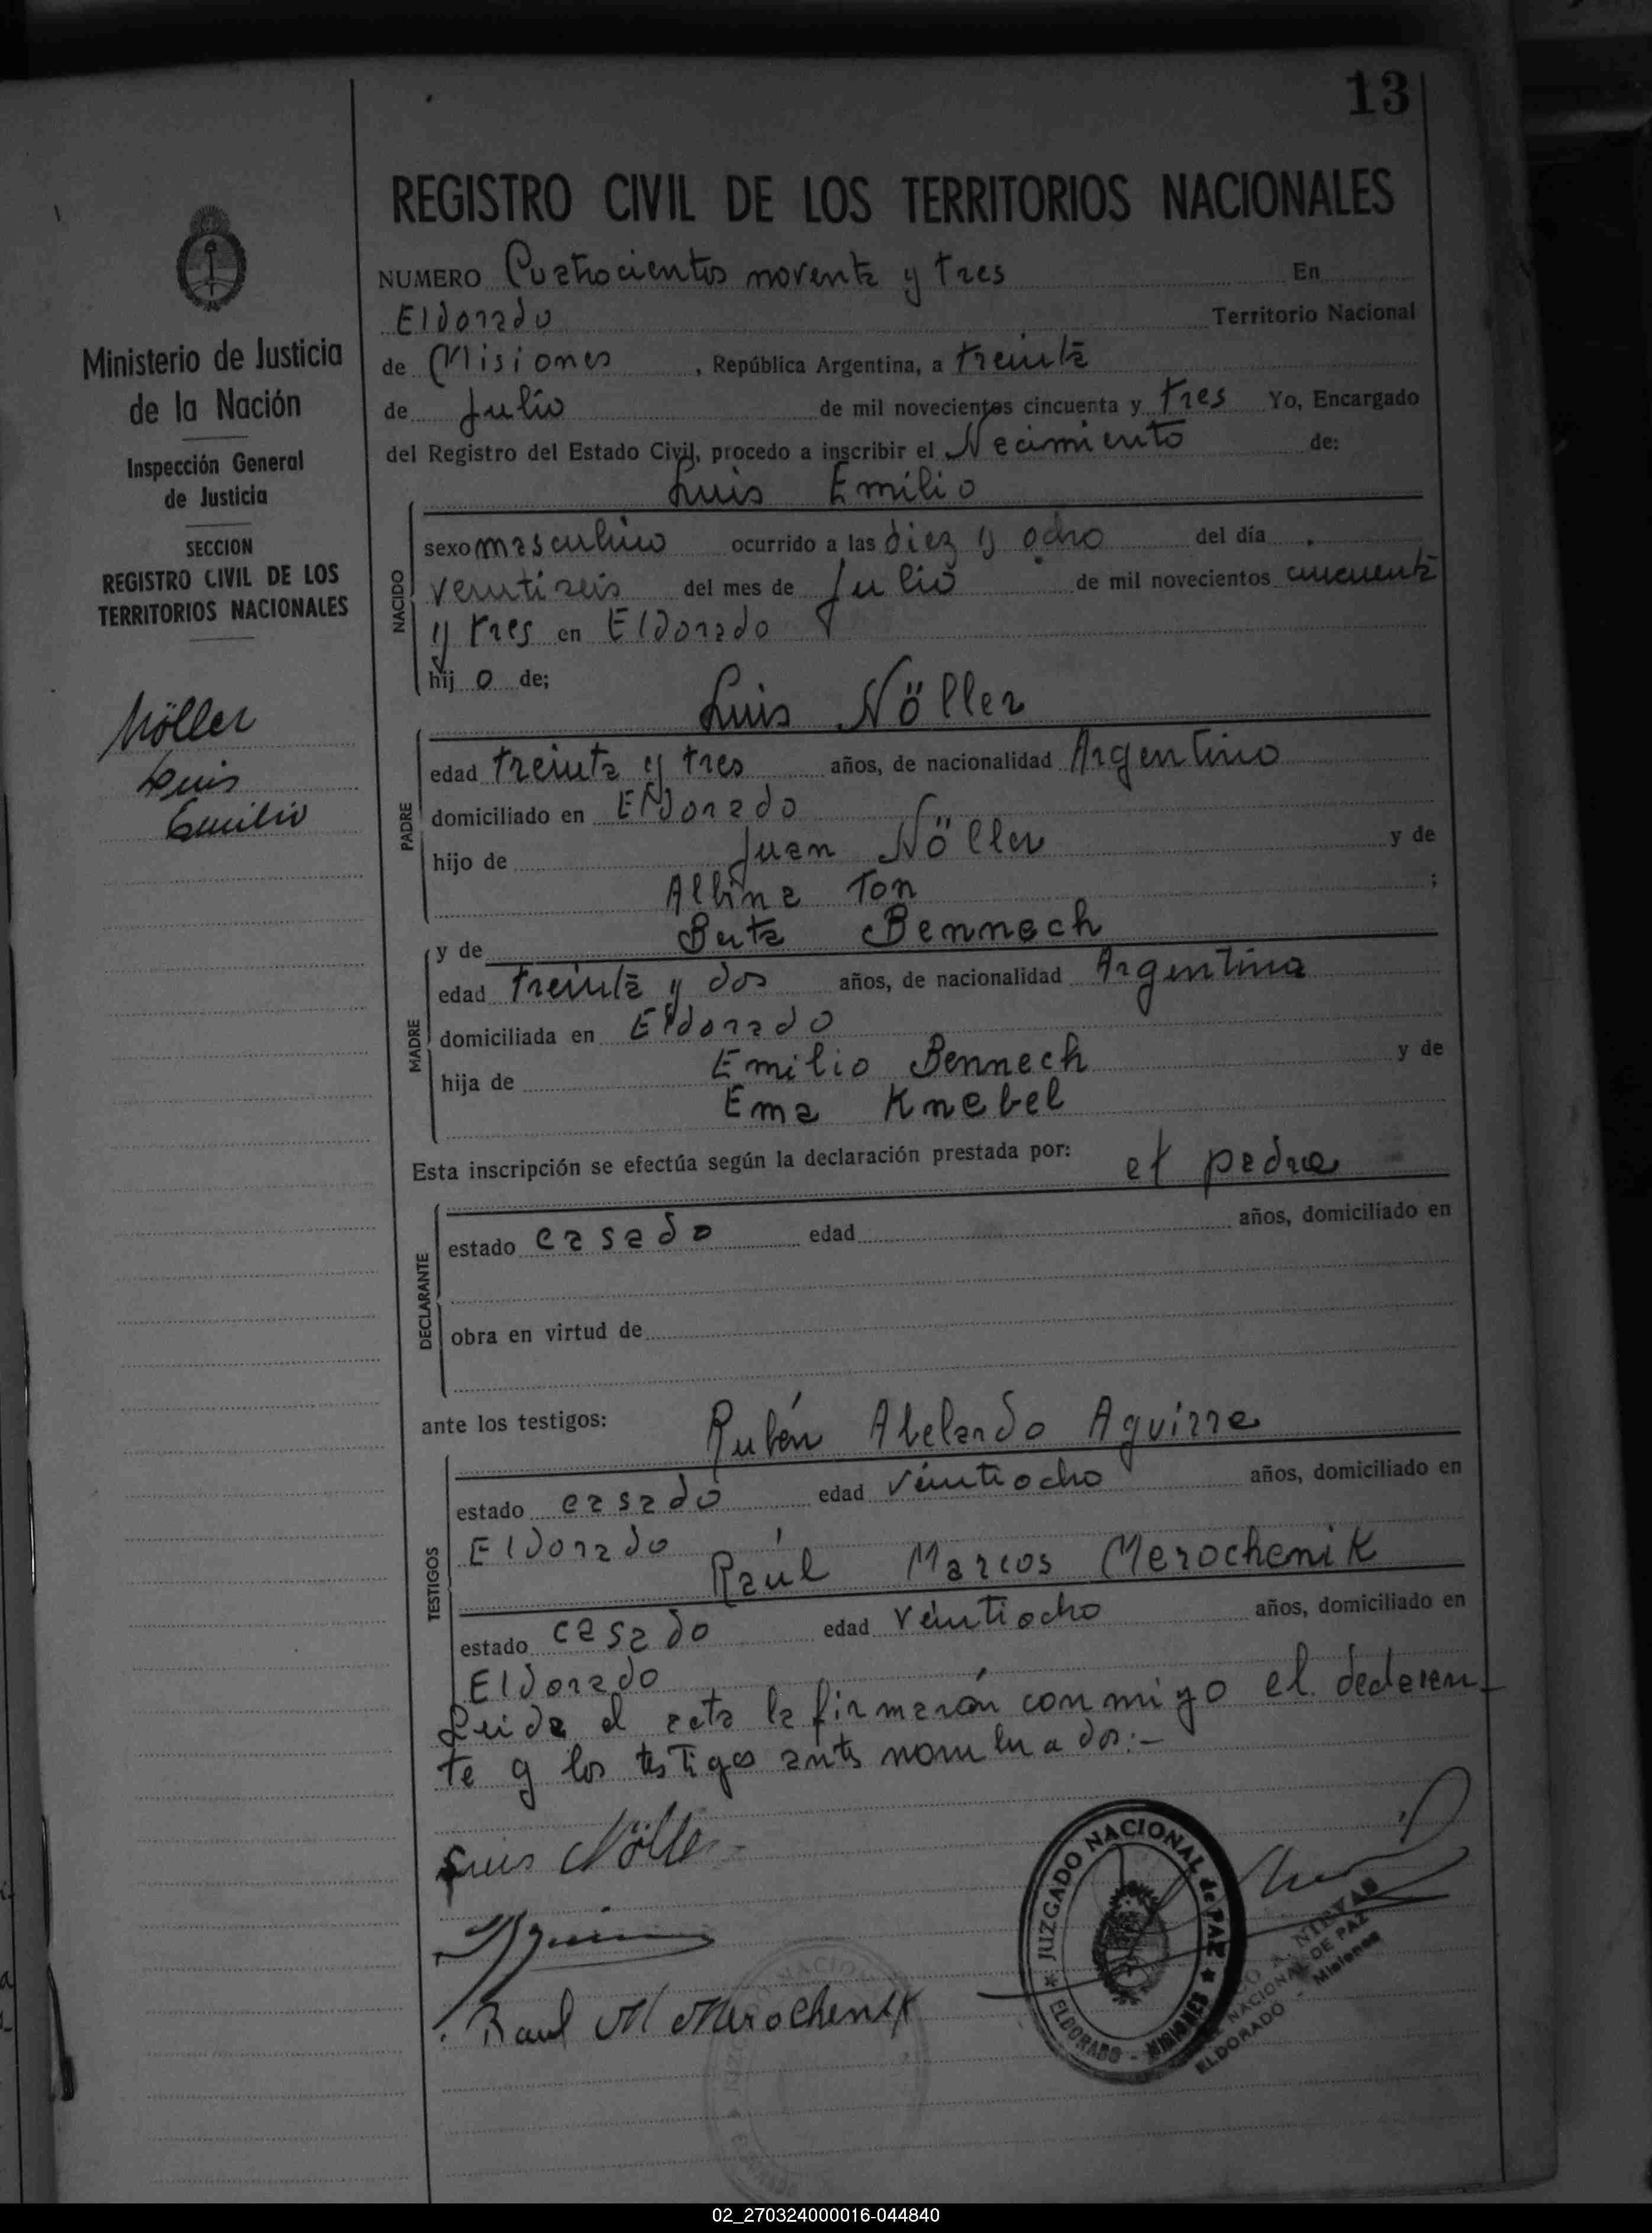 13
REGISTRO CIVIL DE LOS TERRITORIOS NACIONALES
Ministerio de Justicia
de la Nación
Inspección General
de Justicia
SECCION
REGISTRO CIVIL DE LOS
TERRITORIOS NACIONALES
Nöller
Luis
Emilio
NUMERO Cuatrocientos noventa y tres En
Eldorado Territorio Nacional
de Misiones, República Argentina, a treinta
de Julio de mil novecientos cincuenta y tres Yo, Encargado
del Registro del Estado Civil, procedo a inscribir el Nacimiento de:
Luis Emilio
NACIDO
sexo masculino ocurrido a las diez y ocho del día
veintiseis del mes de Julio de mil novecientos cincuenta
y tres en Eldorado
hijo de;
Luis Nöller
PADRE
edad treinta y tres años, de nacionalidad Argentino
domiciliado en Eldorado
hijo de Juan Nöller y de
Albina Ton ;
y de Berta Bennech
MADRE
edad treinta y dos años, de nacionalidad Argentina
domiciliada en Eldorado
hija de Emilio Bennech y de
Ema Knebel
Esta inscripción se efectúa según la declaración prestada por: el padre
DECLARANTE
estado casado edad años, domiciliado en
obra en virtud de
ante los testigos: Rubén Abelardo Aguirre
TESTIGOS
estado casado edad veintiocho años, domiciliado en
Eldorado
Raúl Marcos Merochenik
estado casado edad veintiocho años, domiciliado en
Eldorado
Leida el acta la firmarán conmigo el declaran-
te y los testigos antes nombrados:-
Luis Nöller
Raul M Merochenik
JUZGADO NACIONAL de PAZ
ELDORADO - MISIONES
NACIONAL DE PAZ
ELDORADO - Misiones
02_270324000016-044840